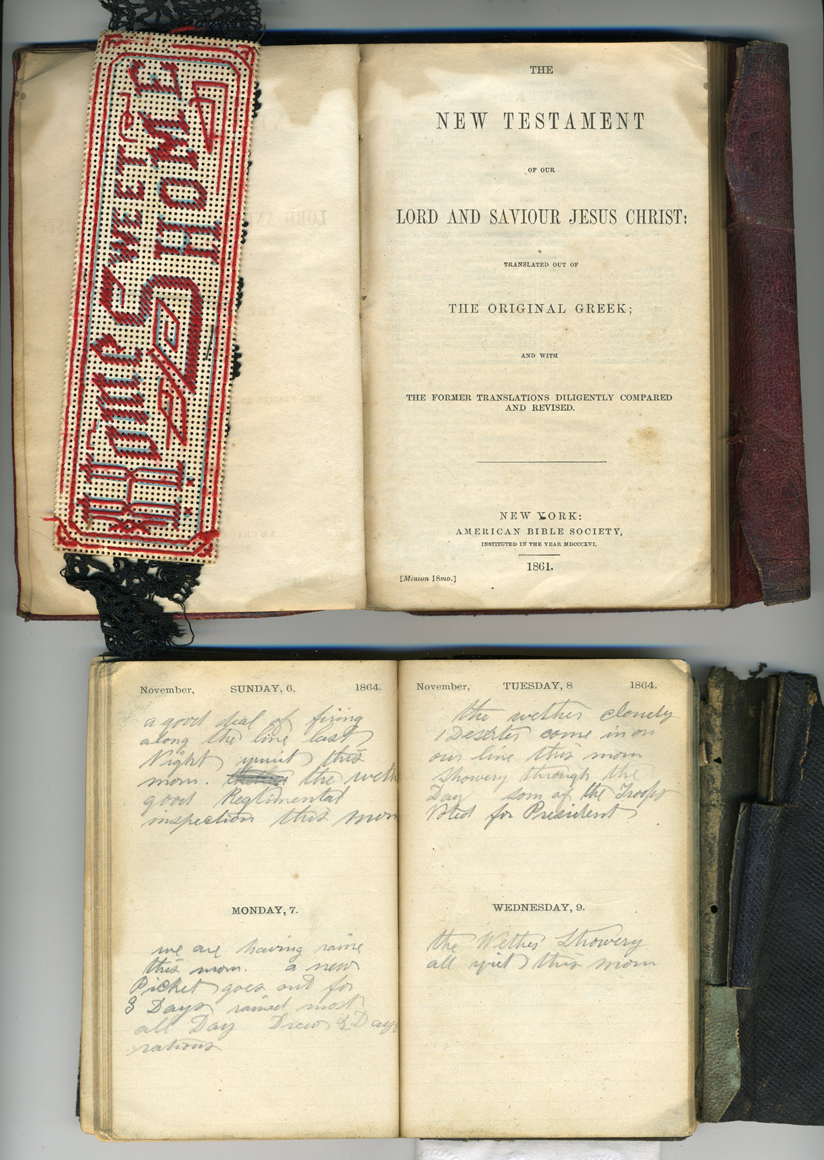 Home SWEET HOME
THE
NEW TESTAMENT
OF OUR
LORD AND SAVIOUR JESUS CHRIST:
TRANSLATED OUT OF
THE ORIGINAL GREEK;
AND WITH
THE FORMER TRANSLATIONS DILIGENTLY COMPARED
AND REVISED.
NEW YORK:
AMERICAN BIBLE SOCIETY,
INSTITUTED IN THE YEAR MDCCCXVI.
1861.
[Minion 18mo.]
November, SUNDAY, 6, 1864.
a good deal of firing
along the line last
Night quiit this
morn. the weth
good Regtimental
inspection this morn
MONDAY, 7.
we are having raine
this morn. a new
Picket goes out for
3 Days rained most
all Day Drew 3 Days
rations
November, TUESDAY, 8 1864.
the wether cloudy
1 Deserter come in on
our line this morn
Showery through the
Day som of the Troops
Voted for President
WEDNESDAY, 9.
the Wether Showery
all quit this morn